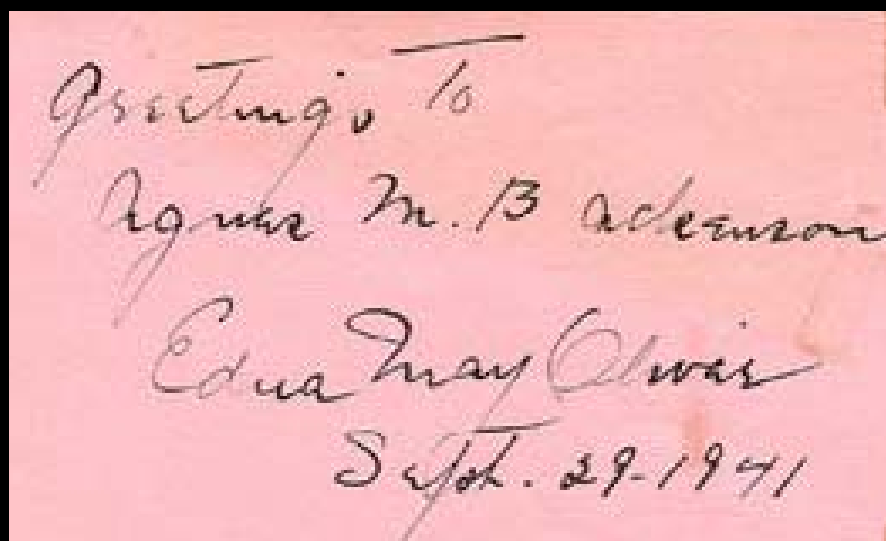 Greetings To
Agnes M. B Adkenson
Edna May Oliver
Sept. 29-1941